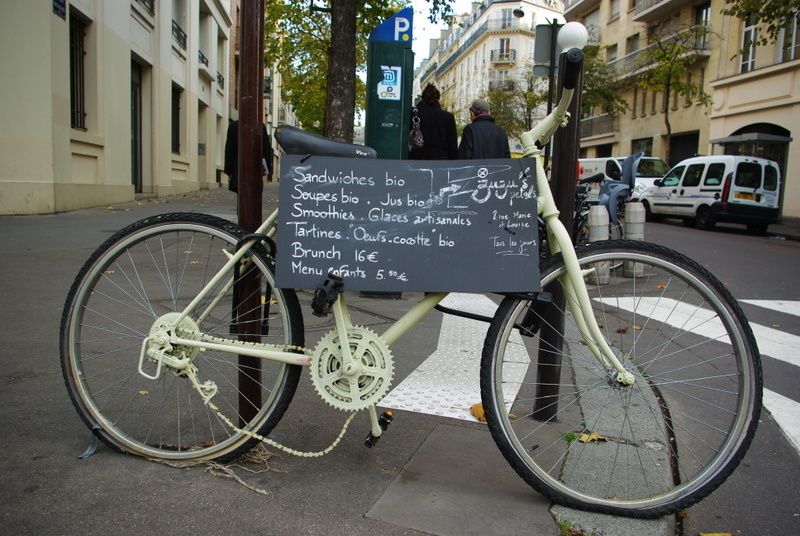 P
Sandwiches bio
Soupes bio . Jus bio
Smoothies . Glaces artisanales
Tartines . "Oeufs-cocotte" bio
Brunch 16€
Menu enfants 5.50€
2, rue Marie
et Louise
Tous les jours